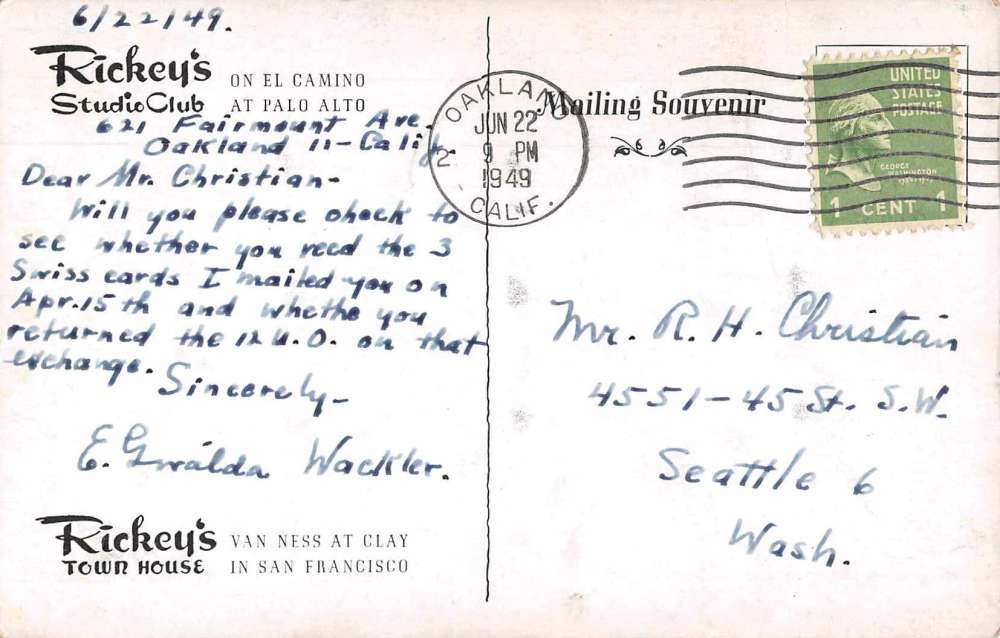 6/22/49.
Rickey's
Studio Club
ON EL CAMINO
AT PALO ALTO
621 Fairmount Ave.
Oakland 11-Calif.
Dear Mr. Christian-
Will you please check to
see whether you recd the 3
Swiss cards I mailed you on
Apr. 15th and whethe you
returned the 12 U.O. on that
exchange.
Sincerely-
E. Gwalda Wackler.
Rickey's
TOWN HOUSE
VAN NESS AT CLAY
IN SAN FRANCISCO
Mailing Souvenir
OAKLAND
JUN 22
9 PM
1949
2
CALIF.
UNITED
STATES
POSTAGE
GEORGE
WASHINGTON
1 CENT 1
Mr. R. H. Christian
4551-45 St. S.W.
Seattle 6
Wash.